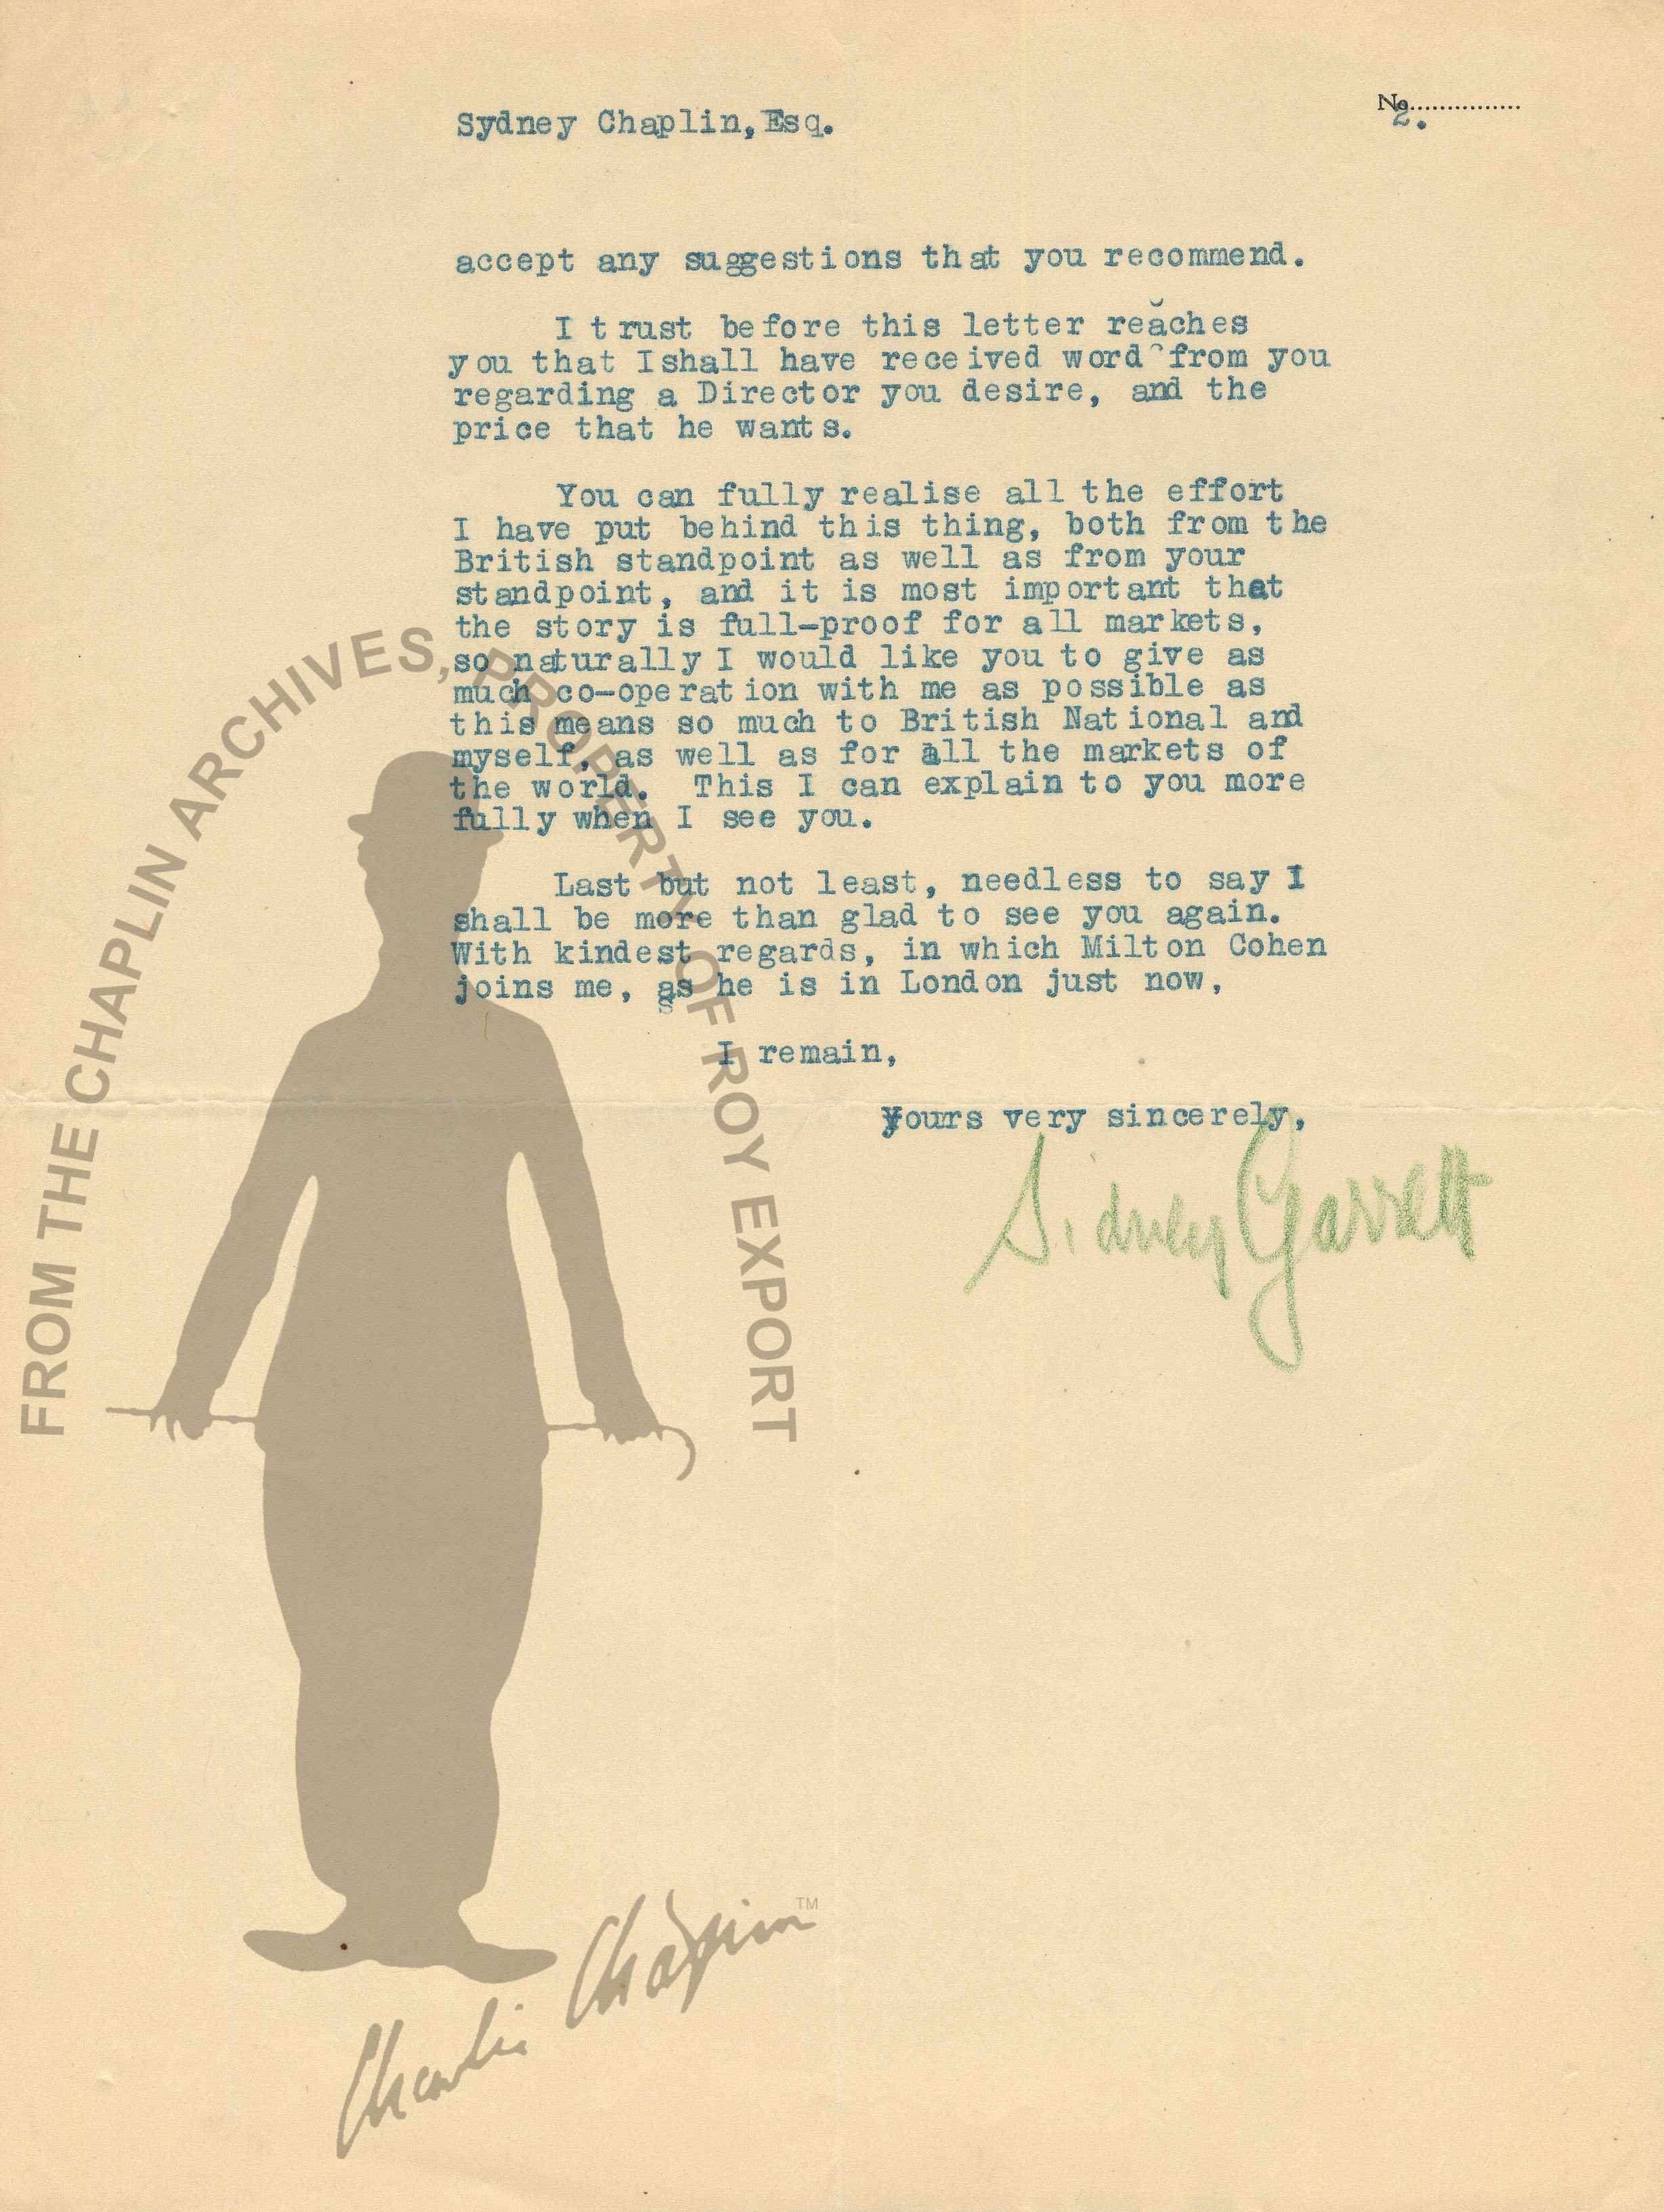 Sydney Chaplin, Esq.
No...............
2.
accept any suggestions that you recommend.
I trust before this letter reaches
you that Ishall have received word from you
regarding a Director you desire, and the
price that he wants.
You can fully realise all the effort
I have put behind this thing, both from the
British standpoint as well as from your
standpoint, and it is most important that
the story is full-proof for all markets,
so naturally I would like you to give as
much co-operation with me as possible as
this means so much to British National and
myself, as well as for all the markets of
the world. This I can explain to you more
fully when I see you.
Last but not least, needless to say I
shall be more than glad to see you again.
With kindest regards, in which Milton Cohen
joins me, as he is in London just now,
I remain,
yours very sincerely,
Sidney Garrett
FROM THE CHAPLIN ARCHIVES, PROPERTY OF ROY EXPORT
Charlie Chaplin TM